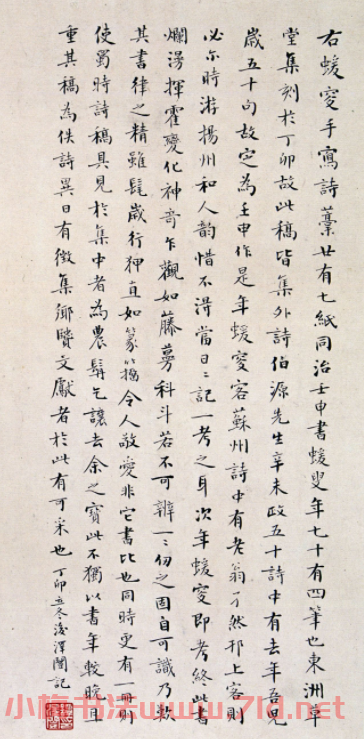 右蝯叟手寫詩藁廿有七紙同治壬申書蝯叟年七十有四筆也東洲草
堂集刻於丁卯故此稿皆集外詩伯源先生辛未政五十詩中有去年吾兄
歲五十句故定為壬申作是年蝯叟客蘇州詩中有老翁了然邗上客則
必亦時游揚州和人韵惜不淂當日日記一考之耳次年蝯叟即考終此書
爛漫揮霍變化神奇乍觀如藤蔓科斗若不可辨一一仞之固自可識乃歎
其書律之精雖髦歲行狎直如篆籀令人敬愛非它書比也同時更有一冊則
使蜀時詩稿具見於集中者為農髯乞讓去余之寶此不獨以書年較晚且
重其稿為佚詩異日有徵集鄉賢文獻者於此有可采也 丁卯立冬後澤闓記
小梅书法www.71d.net